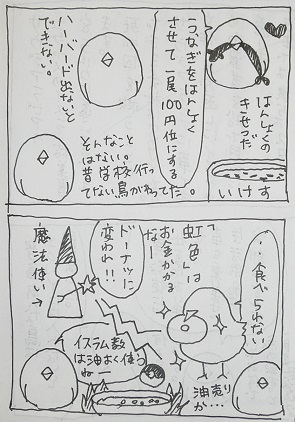 はんしょくの
きせつだ
いけす
うなぎをはんしょく
させて一尾
100円位にする
ハーバード出ないと
できない。
そんなこと
はない。
昔は校行っ
てない鳥がやってた。
・・食べられない
「虹色」は
お金かかる
なー
ドーナツに
変われ!!
魔法使い→
イスラム教
は油よく使う
ねー
油売り
が…